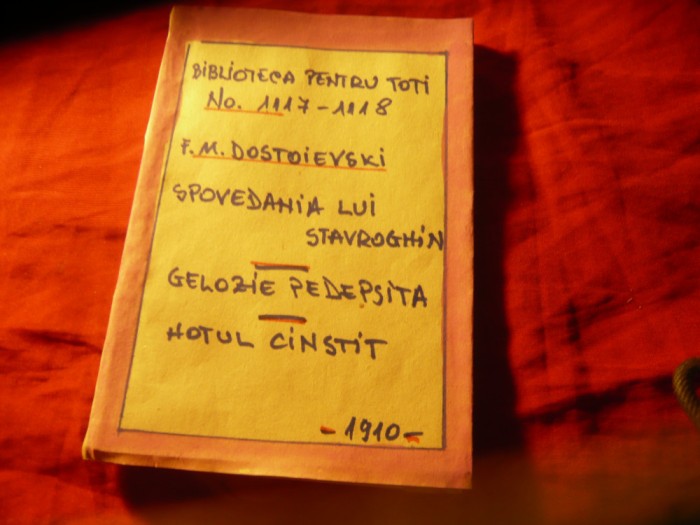 BIBLIOTECA PENTRU TOTI
No. 1117-1118
F.M. DOSTOIEVSKI
SPOVEDANIA LUI
STAVROGHIN
GELOZIE PEDEPSITA
HOTUL CINSTIT
-1910-